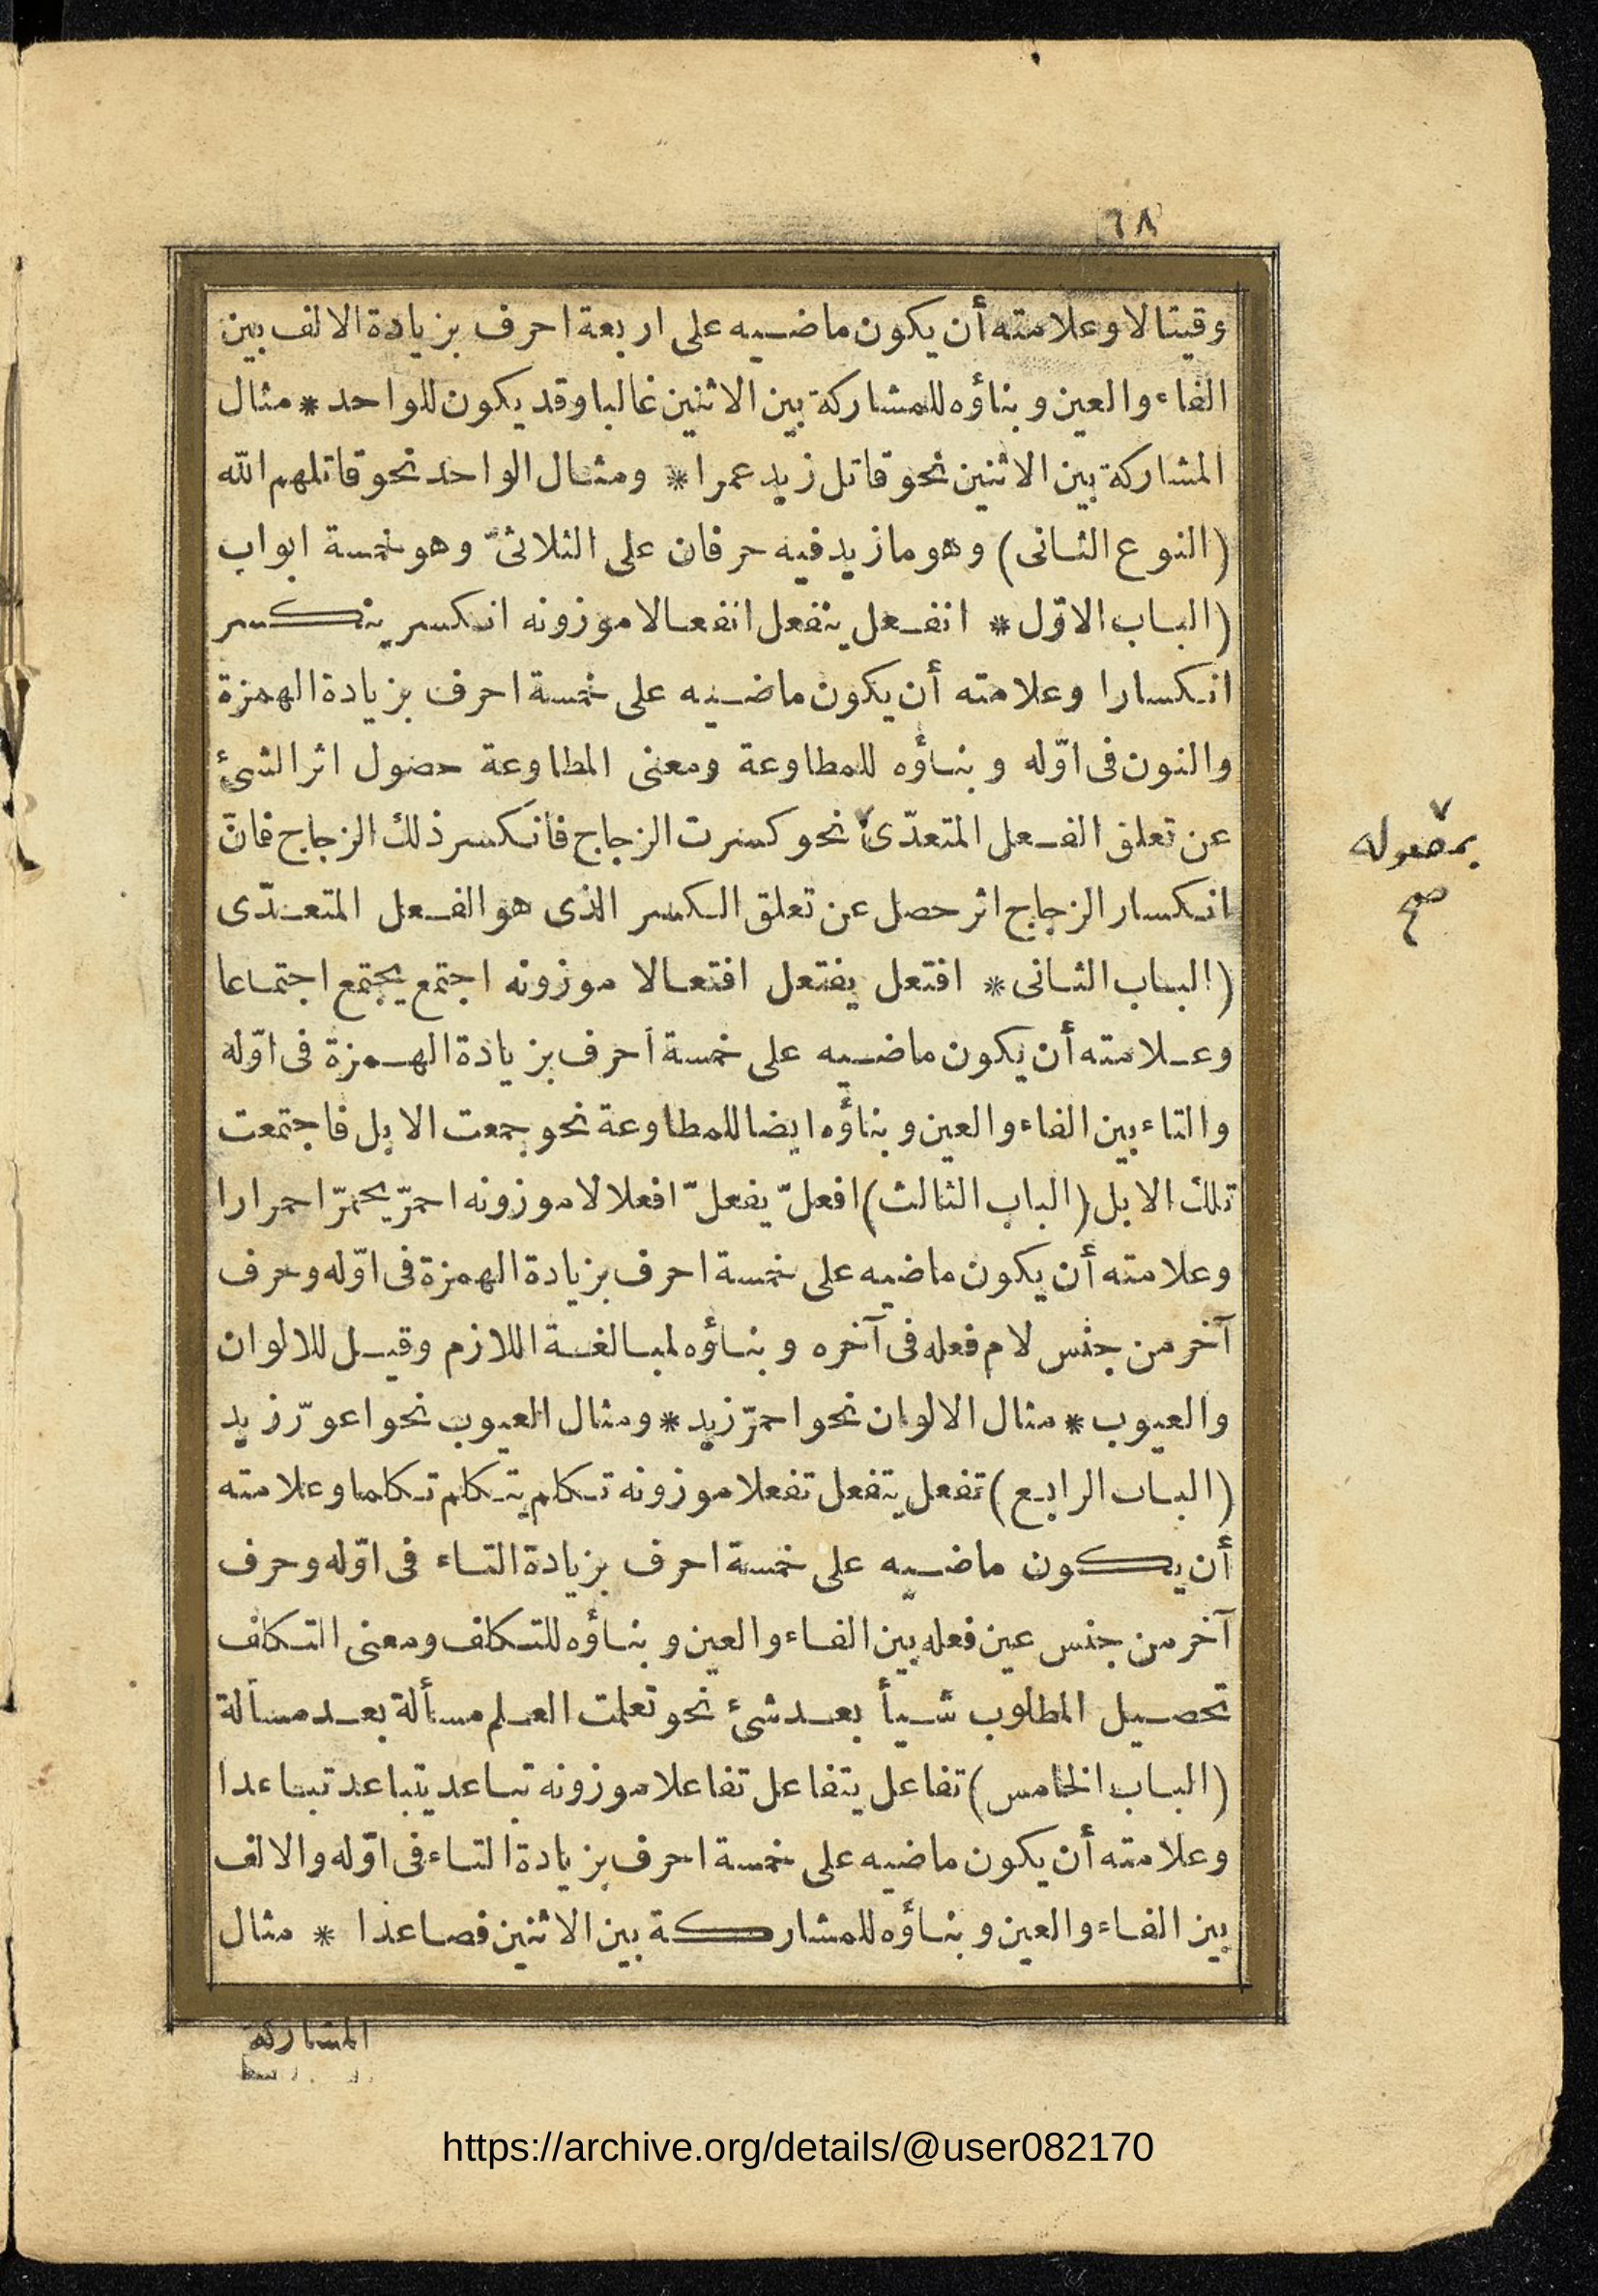 ٦٨
وقيتالا وعلامته أن يكون ماضيه على اربعة احرف بزيادة الالف بين
الفاء والعين وبناؤه للمشاركة بين الاثنين غالبا وقد يكون للواحد * مثال
المشاركة بين الاثنين نحو قاتل زيد عمرا * ومثال الواحد نحو قاتلهم الله
(النوع الثانى) وهو ما زيد فيه حرفان على الثلاثىّ وهو خمسة ابواب
(الباب الاوّل * انفعل ينفعل انفعالا موزونه انكسر ينكسر
انكسارا وعلامته أن يكون ماضيه على خمسة احرف بزيادة الهمزة
والنون فى اوّله وبناؤه للمطاوعة ومعنى المطاوعة حصول اثر الشئ
عن تعلق الفعل المتعدّى نحو كسرت الزجاج فانكسر ذلك الزجاج فانّ
بمفعوله
صح
انكسار الزجاج اثر حصل عن تعلق الكسر الذى هو الفعل المتعدّى
(الباب الثانى * افتعل يفتعل افتعالا موزونه اجتمع يجتمع اجتماعا
وعلامته أن يكون ماضيه على خمسة أحرف بزيادة الهمزة فى اوّله
والتاء بين الفاء والعين وبناؤه ايضا للمطاوعة نحو جمعت الابل فاجتمعت
تلك الابل (الباب الثالث) افعلّ يفعلّ افعلالا موزونه احمرّ يحمرّ احمرارا
وعلامته أن يكون ماضيه على خمسة احرف بزيادة الهمزة فى اوّله وحرف
آخر من جنس لام فعله فى آخره وبناؤه لمبالغة اللازم وقيل للالوان
والعيوب * مثال الالوان نحو احمرّ زيد * ومثال العيوب نحو اعورّ زيد
(الباب الرابع) تفعل يتفعل تفعلا موزونه تكلم يتكلم تكلما وعلامته
أن يكون ماضيه على خمسة احرف بزيادة التاء فى اوّله وحرف
آخر من جنس عين فعله بين الفاء والعين وبناؤه للتكلف ومعنى التكلف
تحصيل المطلوب شيأ بعد شئ نحو تعلمت العلم مسألة بعد مسألة
(الباب الخامس) تفاعل يتفاعل تفاعلا موزونه تباعد يتباعد تباعدا
وعلامته أن يكون ماضيه على خمسة احرف بزيادة التاء فى اوّله والالف
بين الفاء والعين وبناؤه للمشاركة بين الاثنين فصاعدا * مثال
المشاركة
https://archive.org/details/@user082170